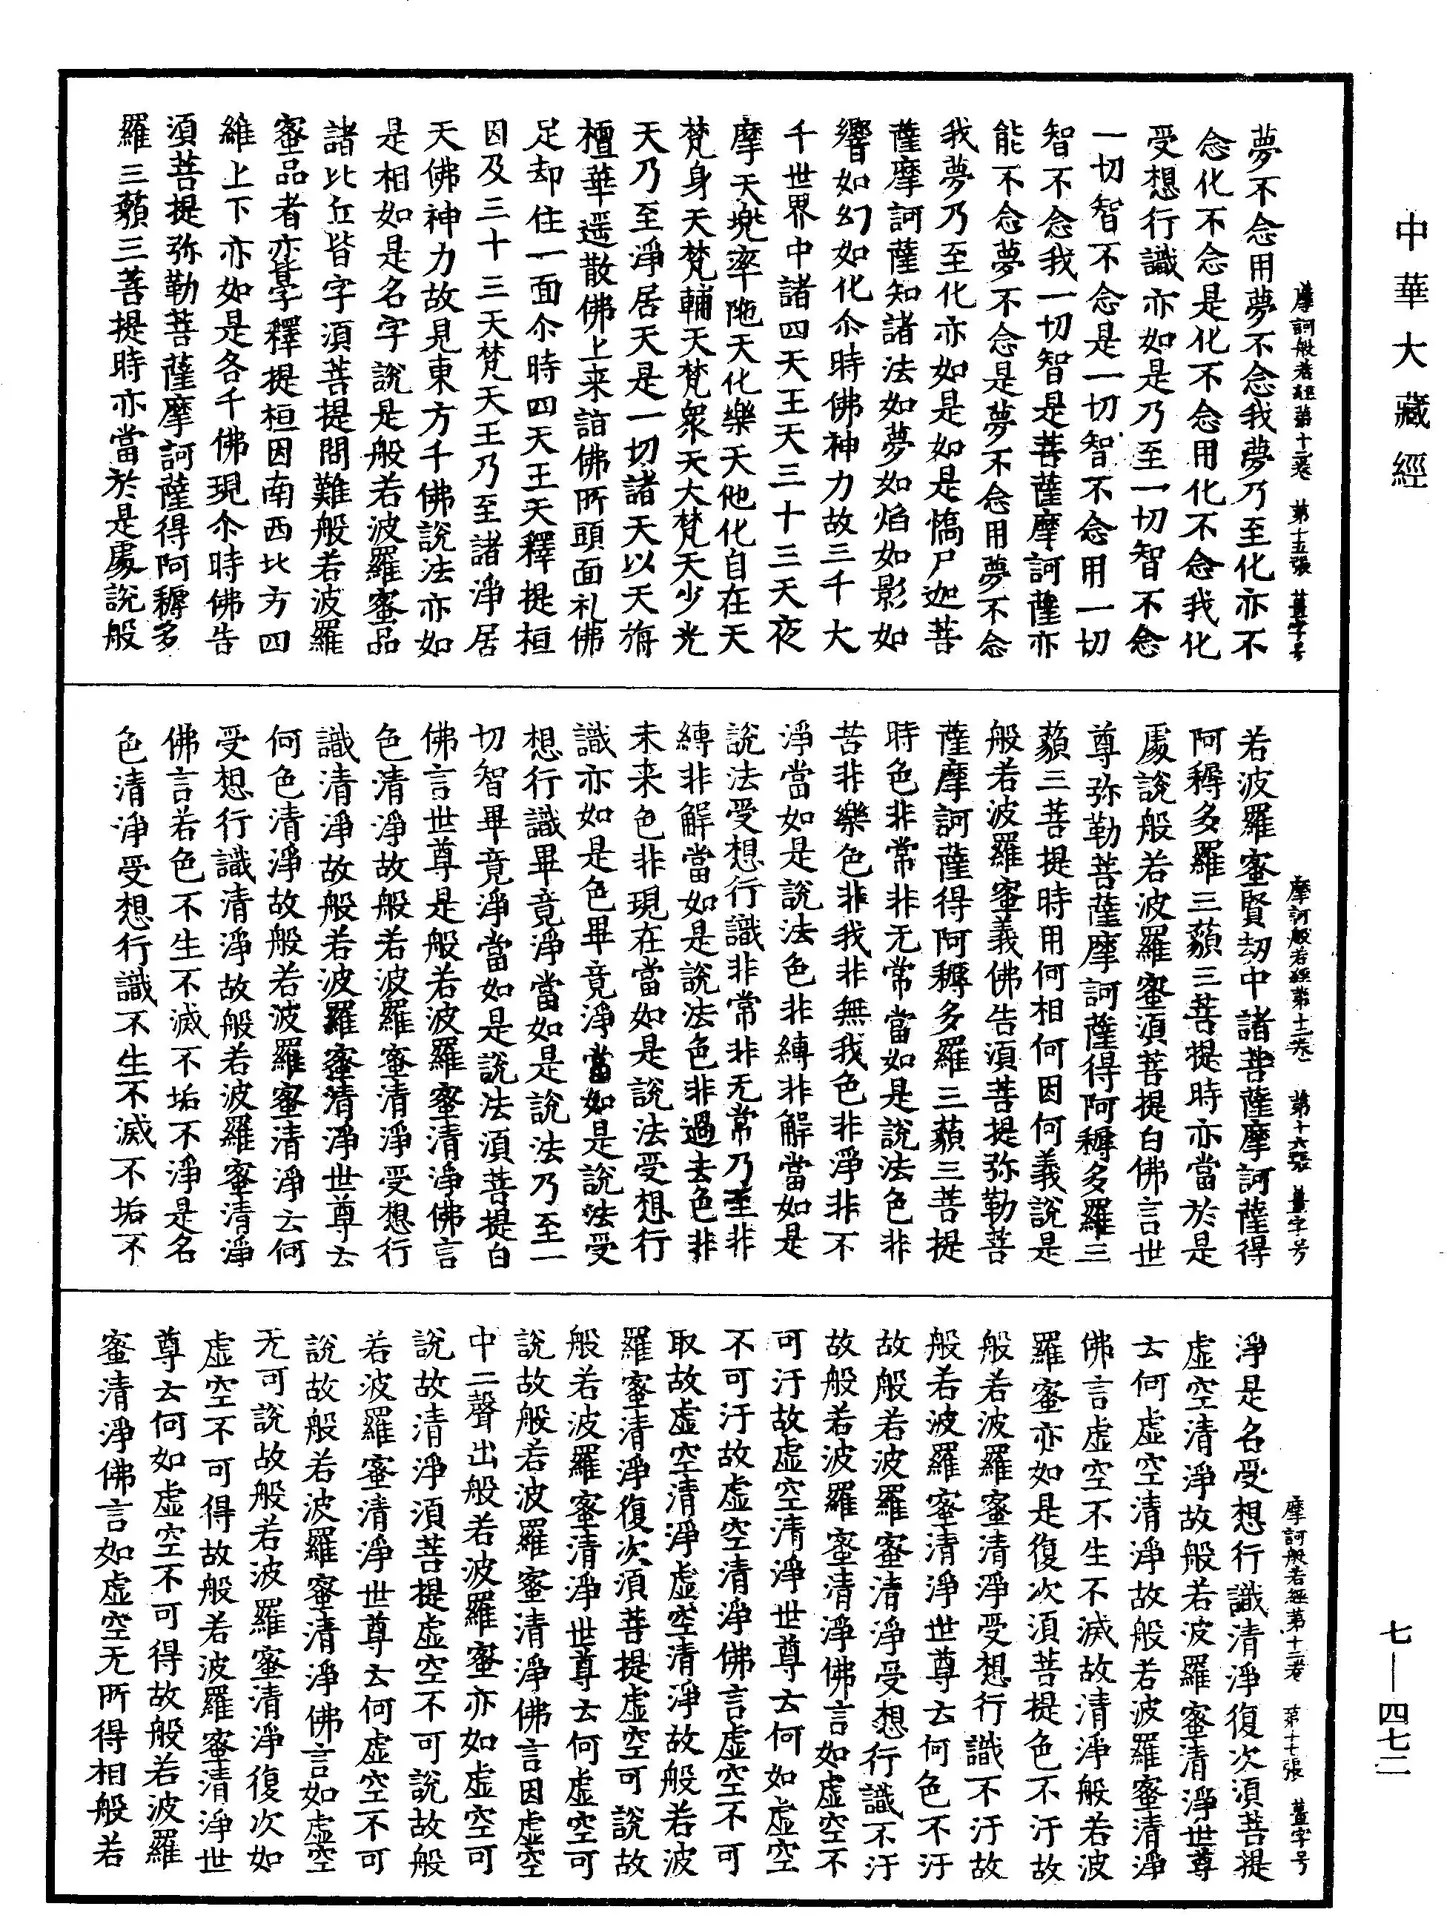 中華大藏經
摩訶般若經第十二卷 第十五張 薑字号
夢不念用夢不念我夢乃至化亦不
念化不念是化不念用化不念我化
受想行識亦如是乃至一切智不念
一切智不念是一切智不念用一切
智不念我一切智是菩薩摩訶薩亦
能不念夢不念是夢不念用夢不念
我夢乃至化亦如是如是憍尸迦菩
薩摩訶薩知諸法如夢如焰如影如
響如幻如化尒時佛神力故三千大
千世界中諸四天王天三十三天夜
摩天兜率陁天化樂天他化自在天
梵身天梵輔天梵衆天大梵天少光
天乃至淨居天是一切諸天以天旃
檀華遥散佛上来詣佛所頭面礼佛
足却住一面尒時四天王天釋提桓
因及三十三天梵天王乃至諸淨居
天佛神力故見東方千佛說法亦如
是相如是名字說是般若波羅蜜品
諸比丘皆字湏菩提問難般若波羅
蜜品者亦皆字釋提桓因南西北方四
維上下亦如是各千佛現尒時佛告
湏菩提弥勒菩薩摩訶薩得阿耨多
羅三藐三菩提時亦當於是處說般
摩訶般若經第十二卷 第十六張 薑字号
若波羅蜜賢劫中諸菩薩摩訶薩得
阿耨多羅三藐三菩提時亦當於是
處說般若波羅蜜湏菩提白佛言世
尊弥勒菩薩摩訶薩得阿耨多羅三
藐三菩提時用何相何因何義說是
般若波羅蜜義佛告湏菩提弥勒菩
薩摩訶薩得阿耨多羅三藐三菩提
時色非常非无常當如是說法色非
苦非樂色非我非無我色非淨非不
淨當如是說法色非縛非解當如是
說法受想行識非常非无常乃至非
縛非解當如是說法色非過去色非
未来色非現在當如是說法受想行
識亦如是色畢竟淨當如是說法受
想行識畢竟淨當如是說法乃至一
切智畢竟淨當如是說法湏菩提白
佛言世尊是般若波羅蜜清淨佛言
色清淨故般若波羅蜜清淨受想行
識清淨故般若波羅蜜清淨世尊云
何色清淨故般若波羅蜜清淨云何
受想行識清淨故般若波羅蜜清淨
佛言若色不生不滅不垢不淨是名
色清淨受想行識不生不滅不垢不
摩訶般若經第十二卷 第十七張 薑字号
淨是名受想行識清淨復次湏菩提
虛空清淨故般若波羅蜜清淨世尊
云何虛空清淨故般若波羅蜜清淨
佛言虛空不生不滅故清淨般若波
羅蜜亦如是復次湏菩提色不汙故
般若波羅蜜清淨受想行識不汙故
般若波羅蜜清淨世尊云何色不汙
故般若波羅蜜清淨受想行識不汙
故般若波羅蜜清淨佛言如虛空不
可汙故虛空清淨世尊云何如虛空
不可汙故虛空清淨佛言虛空不可
取故虛空清淨虛空清淨故般若波
羅蜜清淨復次湏菩提虛空可說故
般若波羅蜜清淨世尊云何虛空可
說故般若波羅蜜清淨佛言因虛空
中二聲出般若波羅蜜亦如虛空可
說故清淨湏菩提虛空不可說故般
若波羅蜜清淨世尊云何虛空不可
說故般若波羅蜜清淨佛言如虛空
无可說故般若波羅蜜清淨復次如
虛空不可得故般若波羅蜜清淨世
尊云何如虛空不可得故般若波羅
蜜清淨佛言如虛空无所得相般若
七—四七二